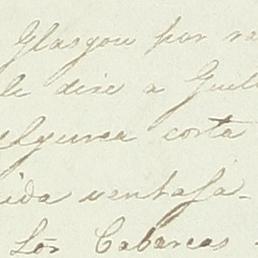 Glasgou por va
le dire a Guil
alguna corta
ida ventaja.
Los Cabarcas